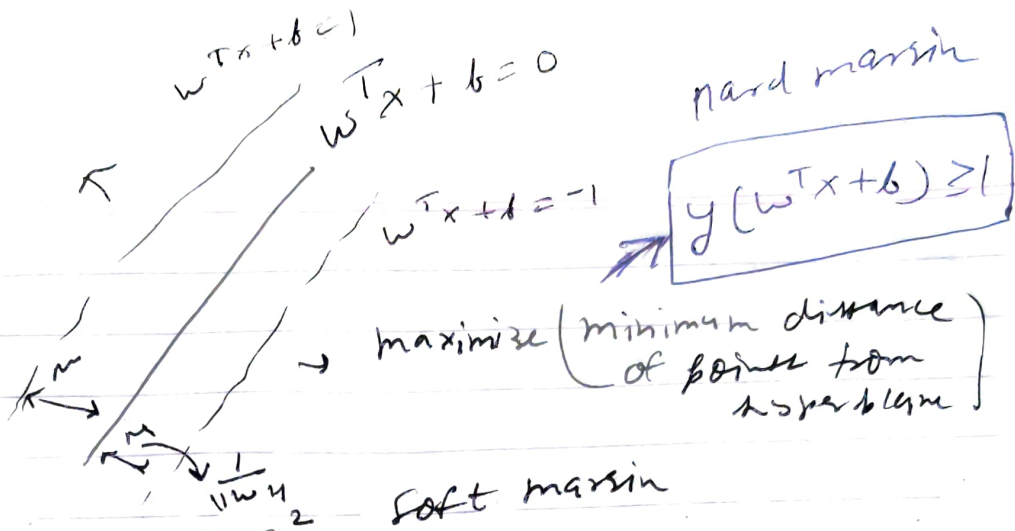 w^T x + b = 1
w^T x + b = 0
hard margin
w^T x + b = -1
y(w^T x + b) ≥ 1
→ maximize (minimum distance
of points from
hyperplane)
M
M
1/||w||
2
soft margin